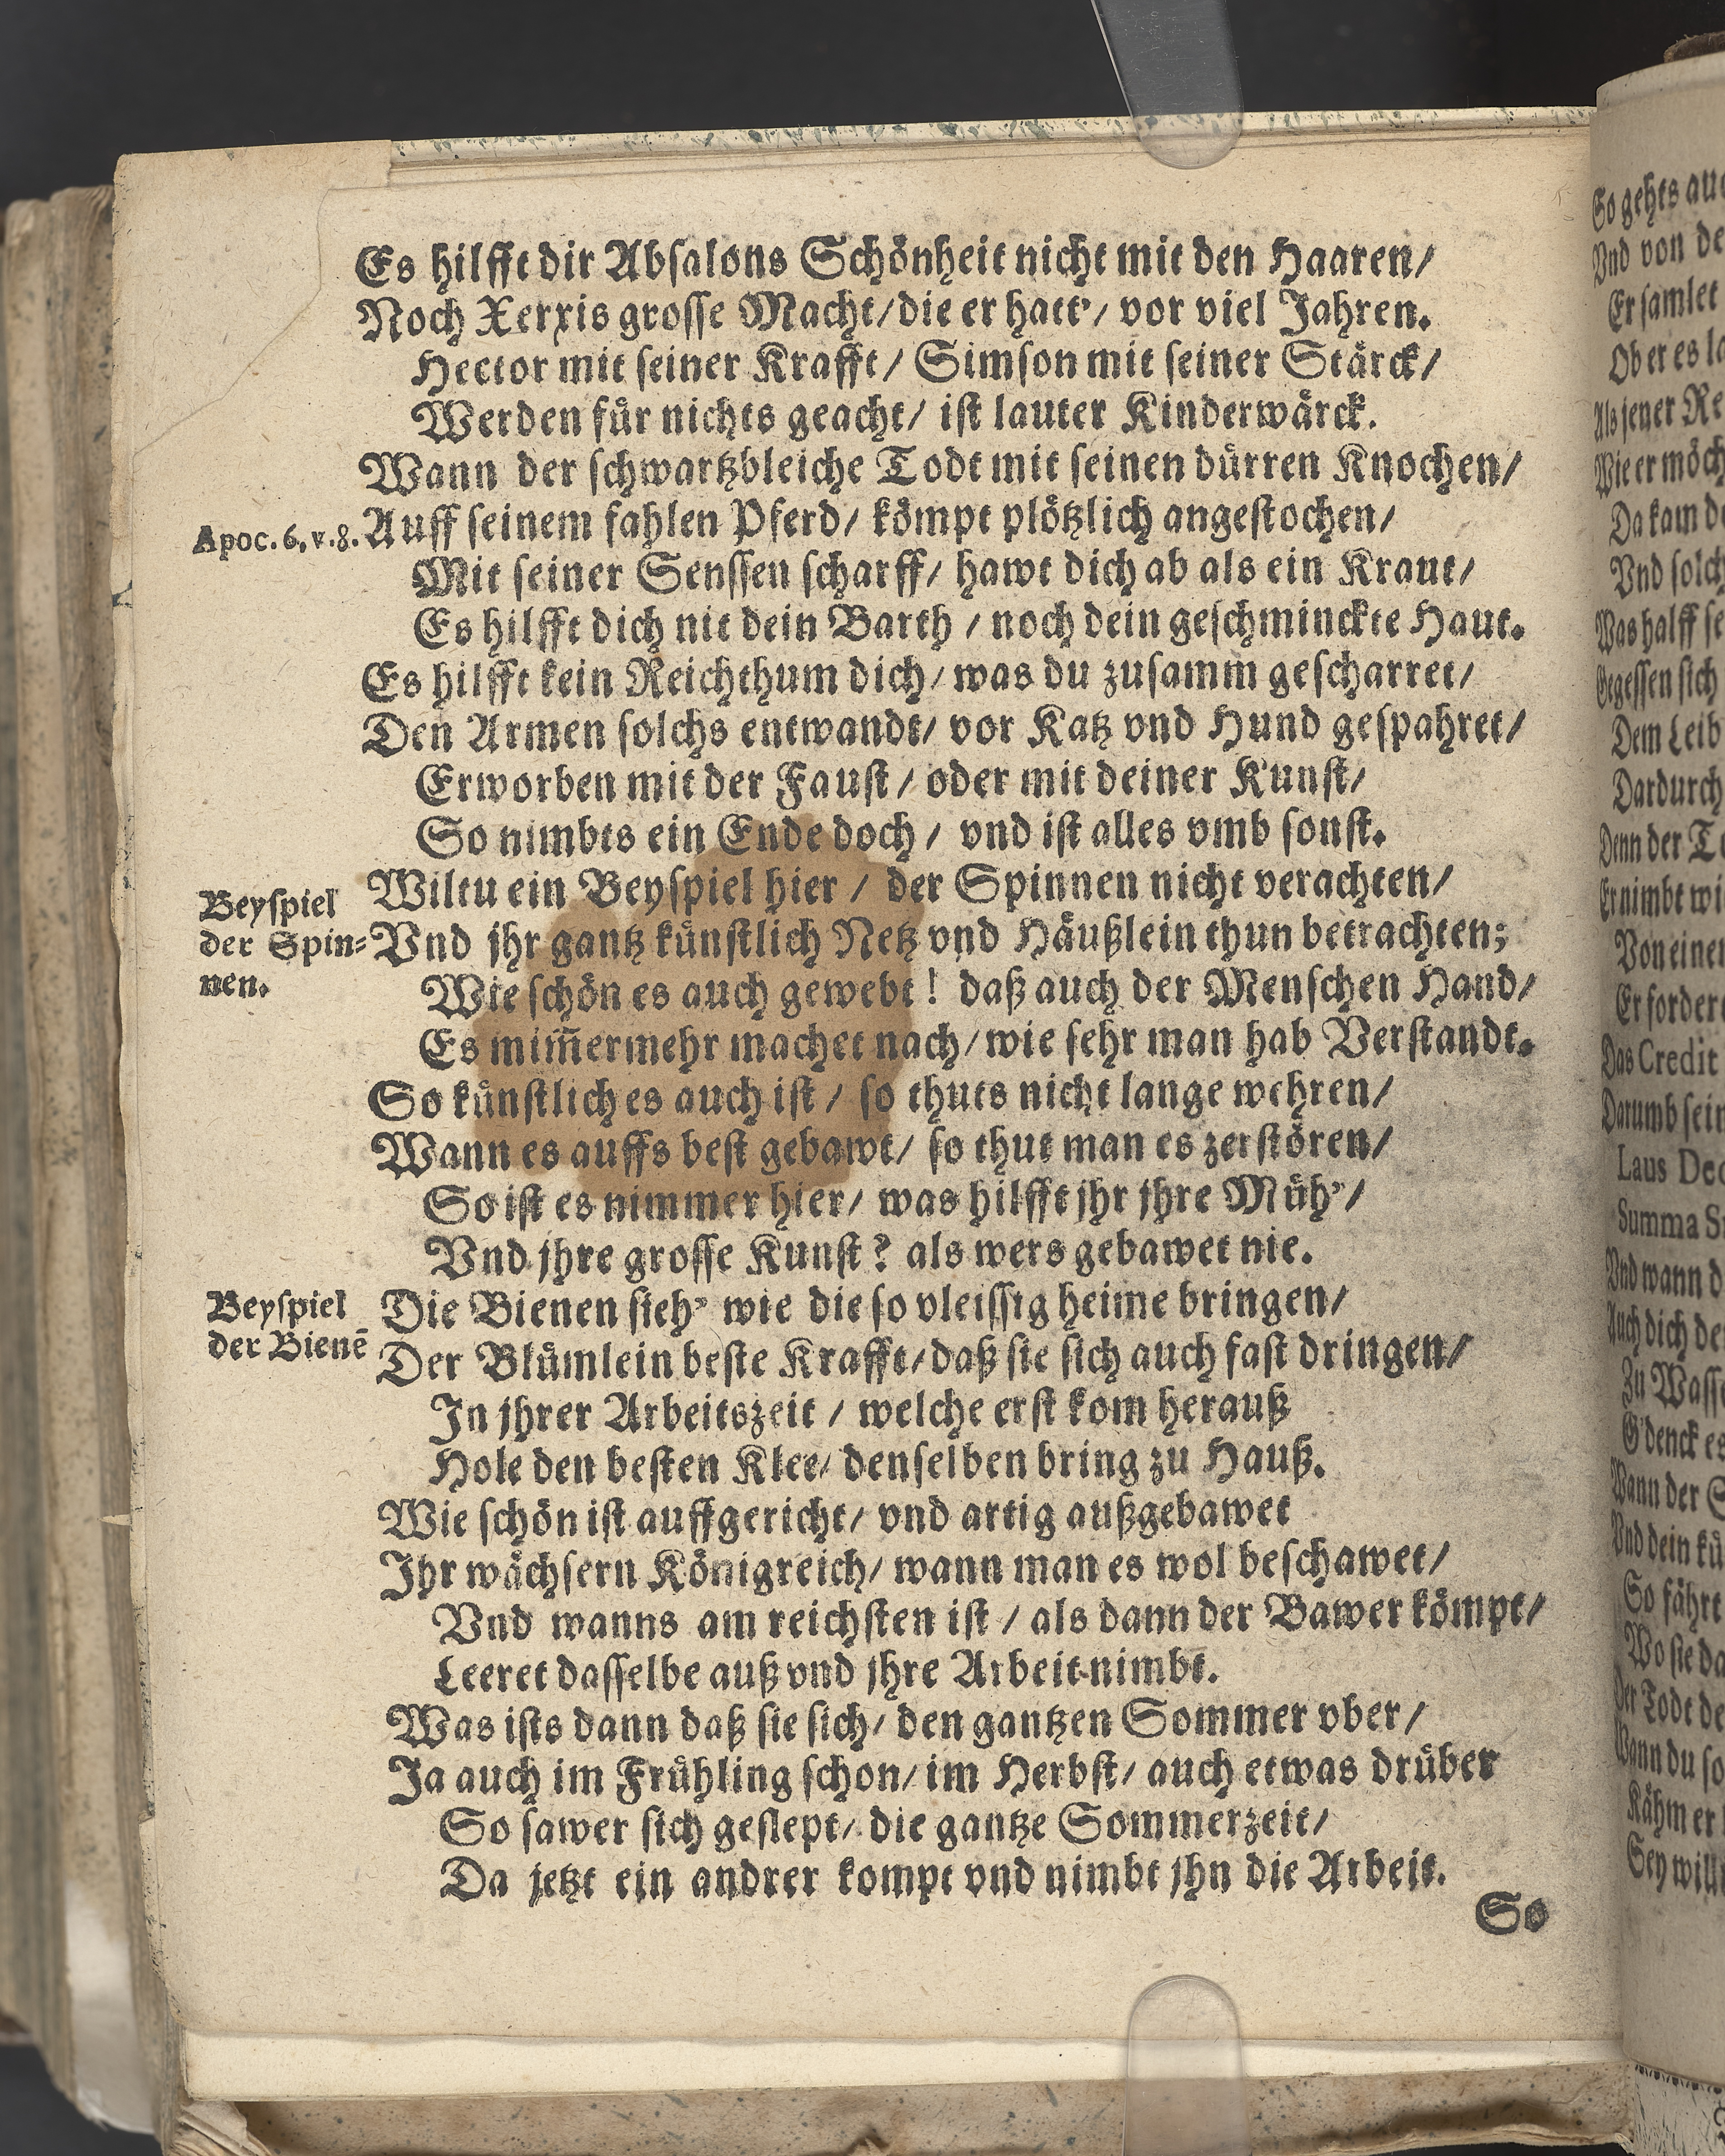 Es hilfft dir Absalons Schönheit nicht mit den Haaren/
Noch Xerxis grosse Macht/ die er hatt'/ vor viel Jahren.
Hector mit seiner Krafft/ Simson mit seiner Stärck/
Werden für nichts geacht/ ist lauter Kinderwärck.
Wann der schwartzbleiche Todt mit seinen dürren Knochen/
Apoc. 6, v. 8.
Auff seinem fahlen Pferd/ kömpt plötzlich angestochen/
Mit seiner Senssen scharff/ hawt dich ab als ein Kraut/
Es hilfft dich nit dein Barth / noch dein geschminckte Haut.
Es hilfft kein Reichthum dich/ was du zusamm gescharret/
Den Armen solchs entwandt/ vor Katz vnd Hund gespahret/
Erworben mit der Faust / oder mit deiner Kunst/
So nimbts ein Ende doch / vnd ist alles vmb sonst.
Beyspiel
der Spin-
nen.
Wiltu ein Beyspiel hier / der Spinnen nicht verachten/
Vnd jhr gantz künstlich Netz vnd Häußlein thun betrachten;
Wie schön es auch gewebt ! daß auch der Menschen Hand/
Es mim̃ermehr machet nach/ wie sehr man hab Verstandt.
So künstlich es auch ist / so thuts nicht lange wehren/
Wann es auffs best gebawt/ so thut man es zerstören/
So ist es nimmer hier/ was hilfft jhr jhre Müh'/
Vnd jhre grosse Kunst ? als wers gebawet nie.
Beyspiel
der Bienē
Die Bienen sieh' wie die so vleissig heime bringen/
Der Blümlein beste Krafft/ daß sie sich auch fast dringen/
In jhrer Arbeitszeit / welche erst kom herauß
Hole den besten Klee/ denselben bring zu Hauß.
Wie schön ist auffgericht/ vnd artig außgebawet
Ihr wächsern Königreich/ wann man es wol beschawet/
Vnd wanns am reichsten ist / als dann der Bawer kömpt/
Leeret dasselbe auß vnd jhre Arbeit nimbt.
Was ists dann daß sie sich/ den gantzen Sommer vber/
Ja auch im Frühling schon/ im Herbst/ auch etwas drüber
So sawer sich geslept/ die gantze Sommerzeit/
Da jetzt ein andrer kompt vnd nimbt jhn die Arbeit.
So
So gehts
Vnd von
Er samlet
Ob er es
Als jener
Wie er
Da kam
Vnd
Was halff
Gegessen sich
Dem Leib
Dardurch
Denn der
Er nimbt
Von
Er
Das Credit
Darumb
Laus
Summa
Vnd wann
Auch dich
Zu
G'denck es
Wann der
Vnd dein
So fährt
Wo sie
Der Todt
Wann du
Kähm er
Sey